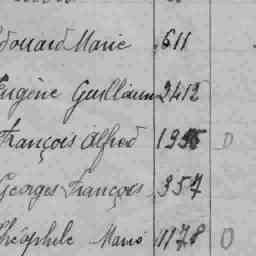 Edouard Marie 611
Eugène Guillaum 2412
François Alfred D
Georges François 357
Théophile Marie 1178 O